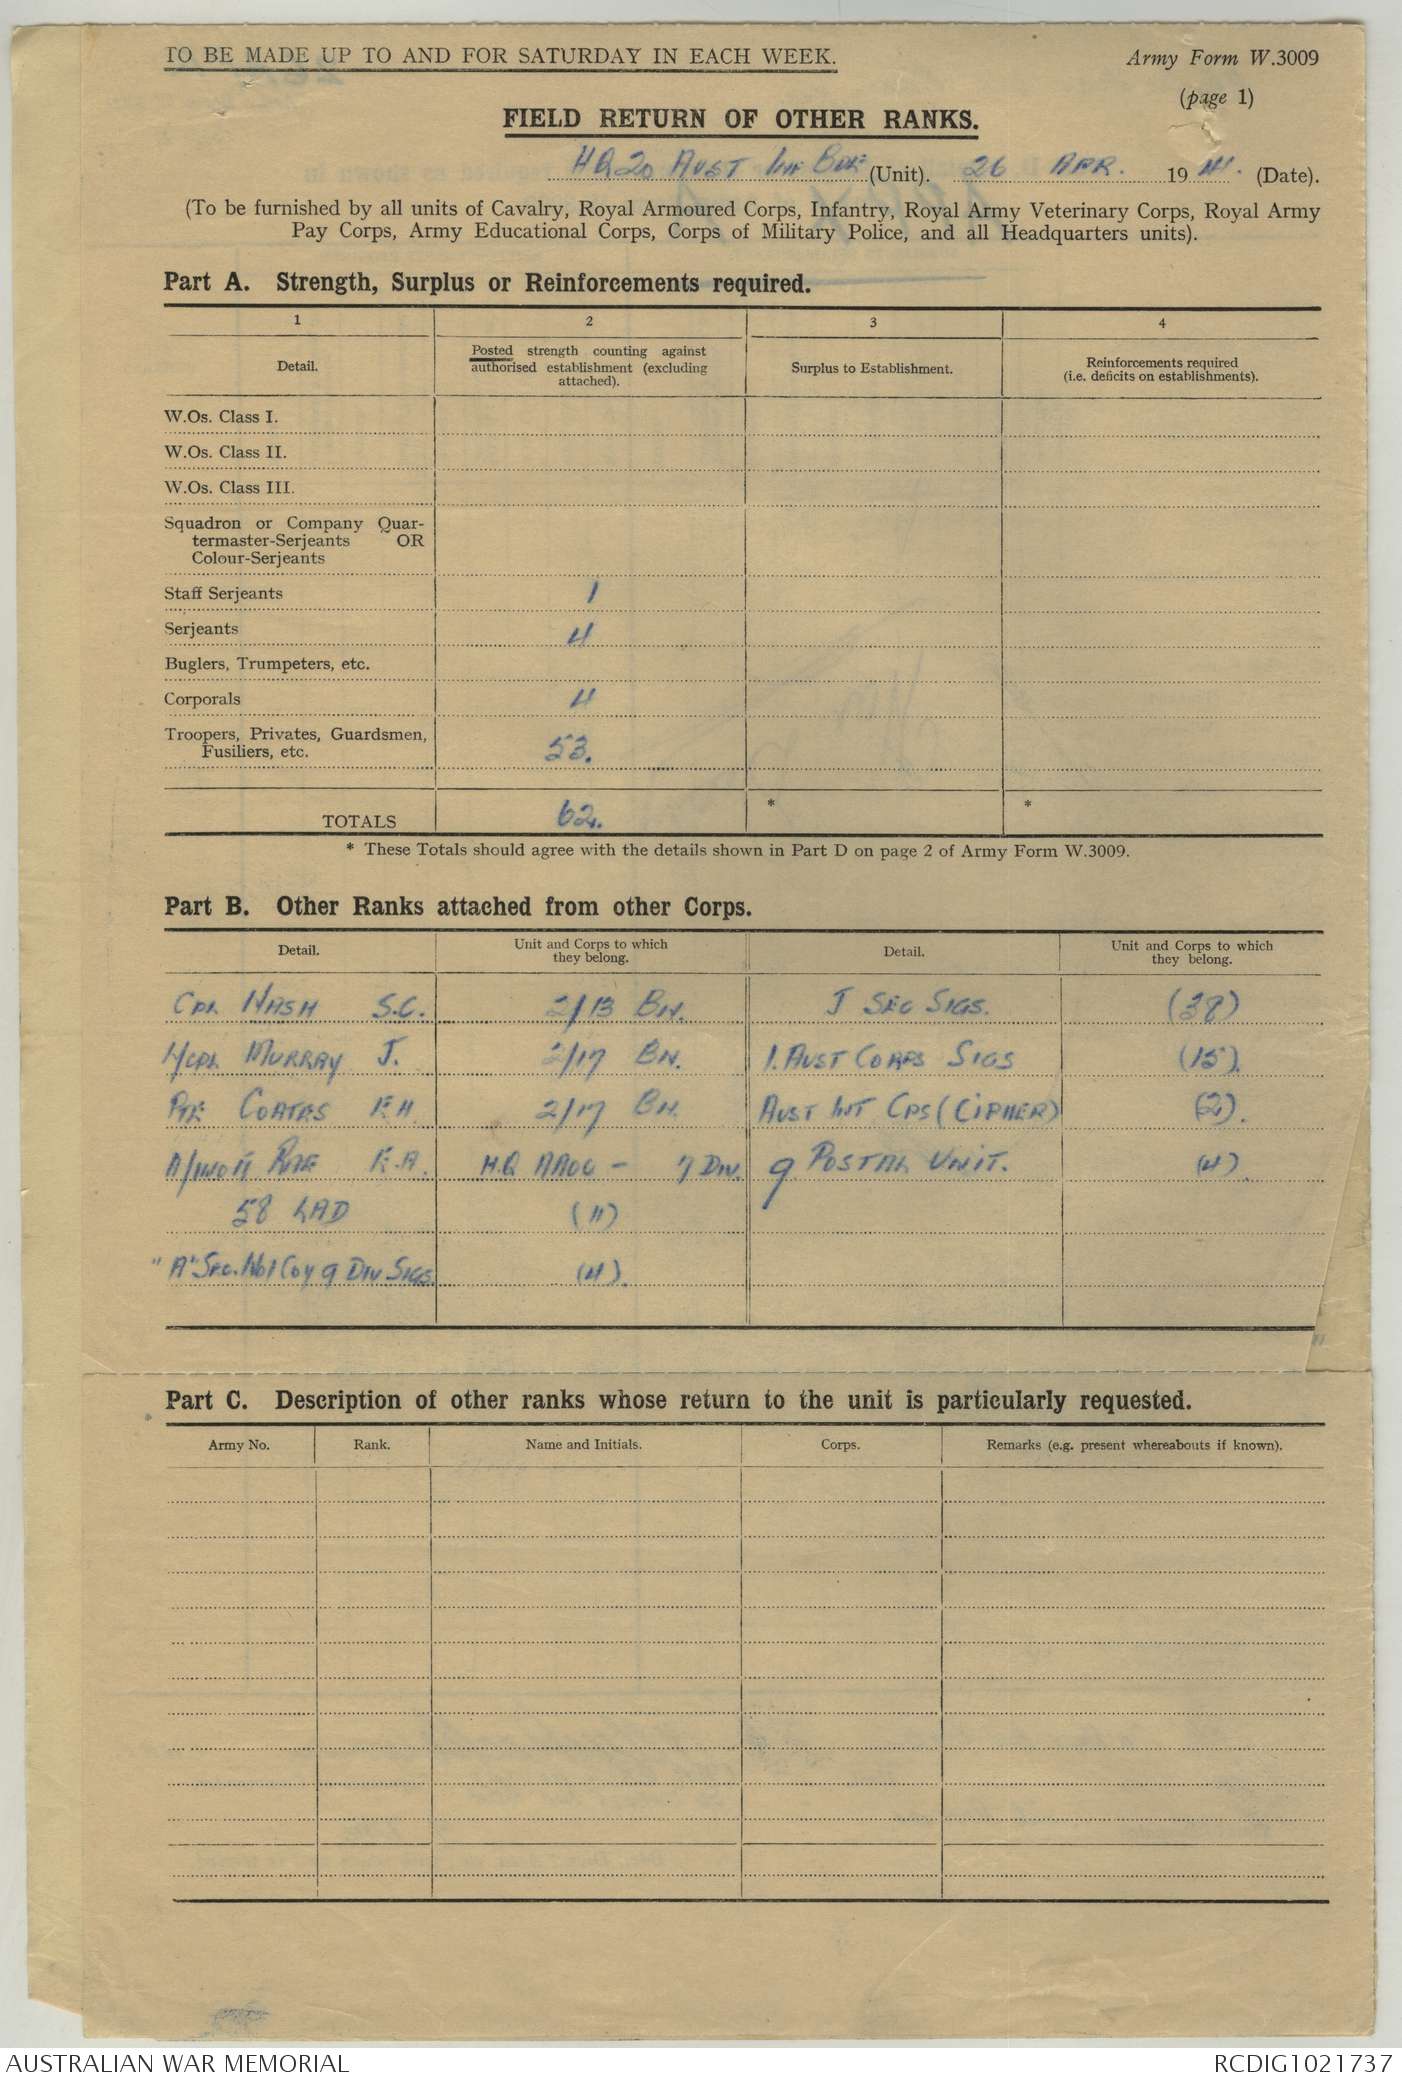 TO BE MADE UP TO AND FOR SATURDAY IN EACH WEEK.
Army Form W.3009
(page 1)
FIELD RETURN OF OTHER RANKS.
HQ 20 AUST INF BDE (Unit). 26 APR. 1941. (Date).
(To be furnished by all units of Cavalry, Royal Armoured Corps, Infantry, Royal Army Veterinary Corps, Royal Army
Pay Corps, Army Educational Corps, Corps of Military Police, and all Headquarters units).
Part A. Strength, Surplus or Reinforcements required.
1 2 3 4
Detail.
Posted strength counting against
authorised establishment (excluding
attached).
Surplus to Establishment.
Reinforcements required
(i.e. deficits on establishments).
W.Os. Class I.
W.Os. Class II.
W.Os. Class III.
Squadron or Company Quar-
termaster-Serjeants OR
Colour-Serjeants
Staff Serjeants 1
Serjeants 4
Buglers, Trumpeters, etc.
Corporals 4
Troopers, Privates, Guardsmen,
Fusiliers, etc. 53.
TOTALS 62. * *
* These Totals should agree with the details shown in Part D on page 2 of Army Form W.3009.
Part B. Other Ranks attached from other Corps.
Detail.
Unit and Corps to which
they belong.
Detail.
Unit and Corps to which
they belong.
CPL NASH S.C. 2/13 BN. J SEC SIGS. (38)
L/CPL MURRAY J. 2/17 BN. 1. AUST CORPS SIGS (15).
PTE COATES E H. 2/17 BN. AUST INT CPS (CIPHER) (2).
E.A. H.Q AAOC - 7 DIV. 9 POSTAL UNIT. (4).
58 LAD (11)
"A" SEC. No1 COY 9 DIV SIGS. (4).
Part C. Description of other ranks whose return to the unit is particularly requested.
Army No. Rank. Name and Initials. Corps. Remarks (e.g. present whereabouts if known).
AUSTRALIAN WAR MEMORIAL
RCDIG1021737